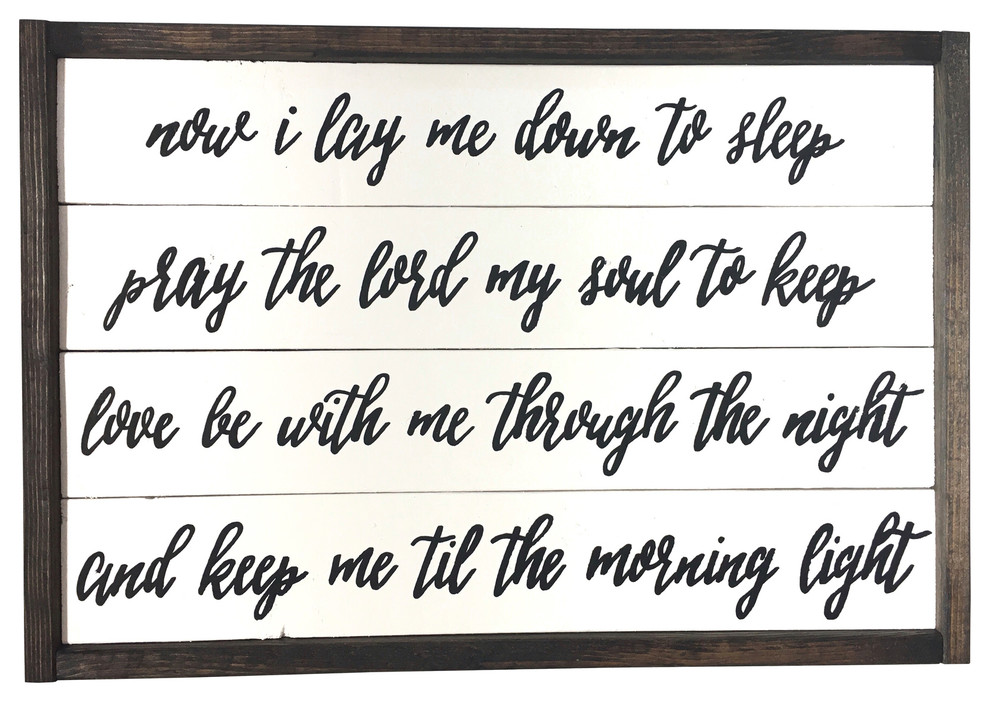 now i lay me down to sleep
pray the lord my soul to keep
love be with me through the night
and keep me til the morning light